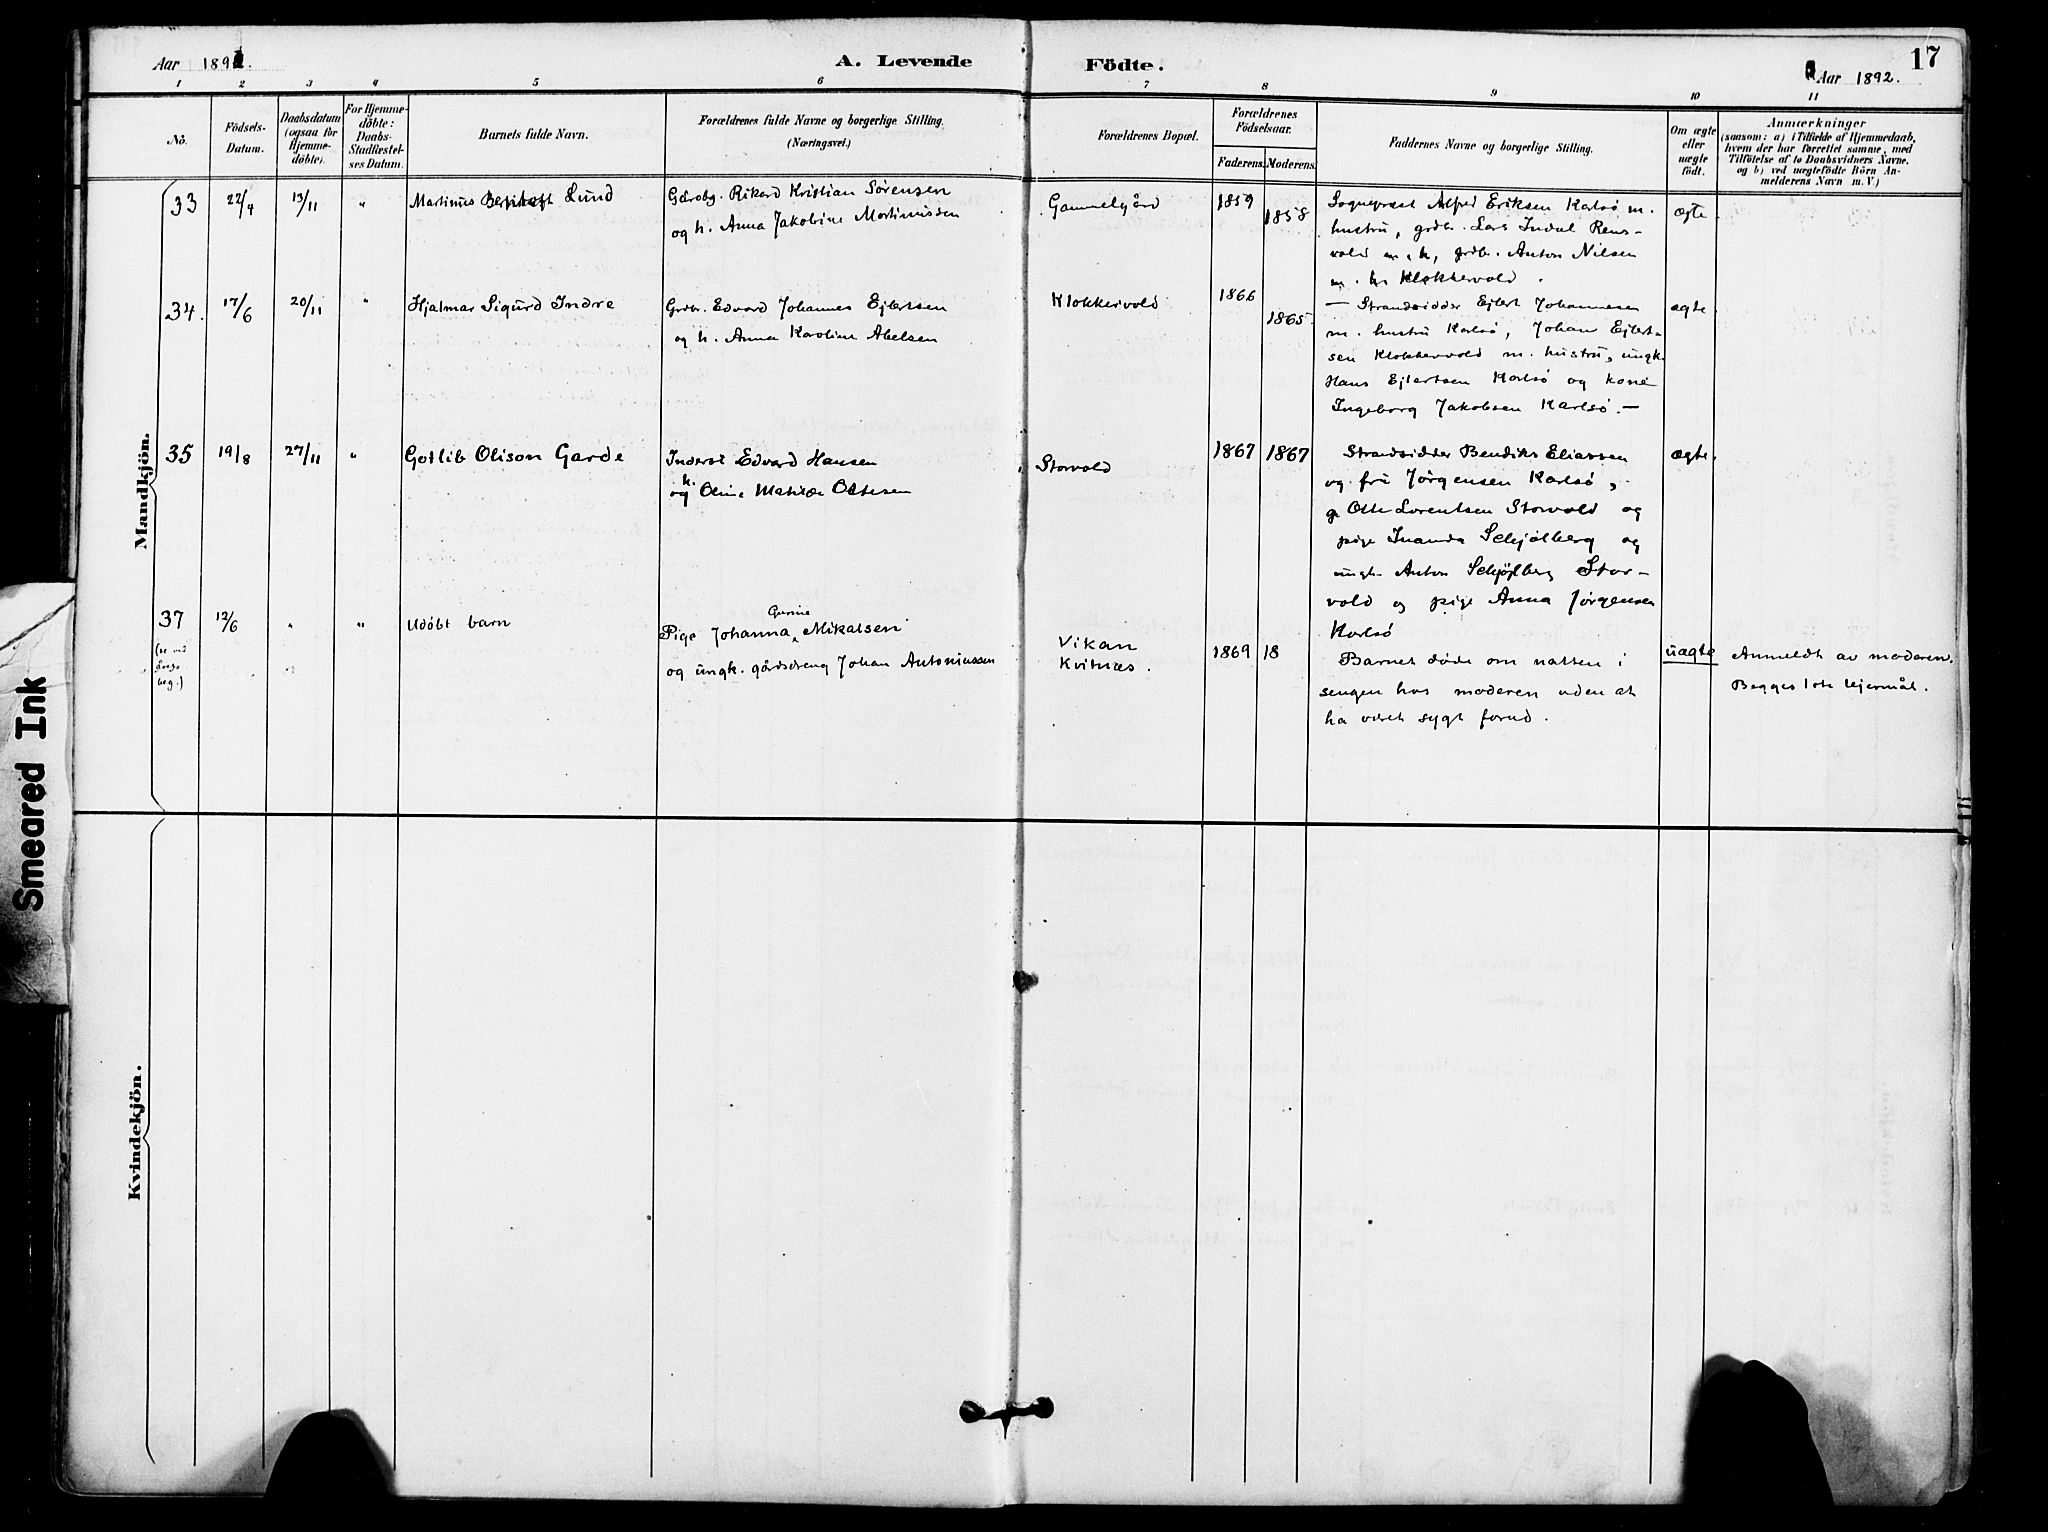 Aar 1892.
A. Levende
Födte.
Aar 1892.
17
1 2 3 4 5 6 7 8 9 10 11
No.
Födsels-
Datum.
Daabsdatum
(ogsaa for
Hjemme-
döbte).
For Hjemme-
döbte:
Daabs-
Stadfæstel-
ses Datum.
Barnets fulde Navn.
Forældrenes fulde Navne og borgerlige Stilling.
(Næringsvei.)
Forældrenes Bopæl.
Forældrenes
Födselsaar.
Faderens. Moderens.
Faddernes Navne og borgerlige Stilling.
Om ægte
eller
uægte
födt.
Anmærkninger
(saasom: a) i Tilfælde af Hjemmedaab,
hvem der har forrettet samme, med
Tilföielse af to Daabsvidners Navne.
og b) ved uægtefödte Börn An-
melderens Navn m. V.)
Mandkjön.
33 22/4 13/11 " Martinus Lund
Gårdbg. Rikard Kristian Sørensen
og h. Anna Jakobine Martinussen
Gammelgård
1859
1858
Sogneprest Alfred Eriksen Karlsö m.
hustru, grdbr. Lars Indal Rens-
vold m. h, grdbr. Anton Nilsen
m. h Klokkervold.
ægte
34. 17/6 20/11 " Hjalmar Sigurd Indre
Grdbr. Edvard Johannes Ejlertsen
og h. Anna Karoline Abelsen
Klokkervold
1866
1865
— Strandsidder Ejlert Johannesen
m. hustru Karlsö, Johan Ejlert-
sen Klokkervold m. hustru, ungk.
Hans Ejlertsen Karlsö og kone
Ingeborg Jakobsen Karlsö. —
ægte.
35 19/8 27/11 " Gotlib Olison Garde
Inderst Edvard Hansen
h.
og Oline Matilde Ottesen
Storvold
1867 1867
Strandsidder Bendiks Eliassen
og fru Jørgensen Karlsö,
g Otte Lorentsen Storvold og
pige Inanda Schjølberg og
ungk. Anton Schjølberg Stor-
vold og pige Anna Jørgensen
Karlsö
ægte.
37 12/6 " " Udöbt barn
(se ved
årets
beg.)
Pige Johanna Mikalsen
og ungk. gårdsdreng Johan Antoniussen
Vikan
Kvitnes.
1869 18
Barnet døde om natten i
sengen hos moderen uden at
ha været sygt forud.
uægte
Anmeldt av moderen.
Begges 1ste lejermål.
Kvindekjön.
Smeared Ink